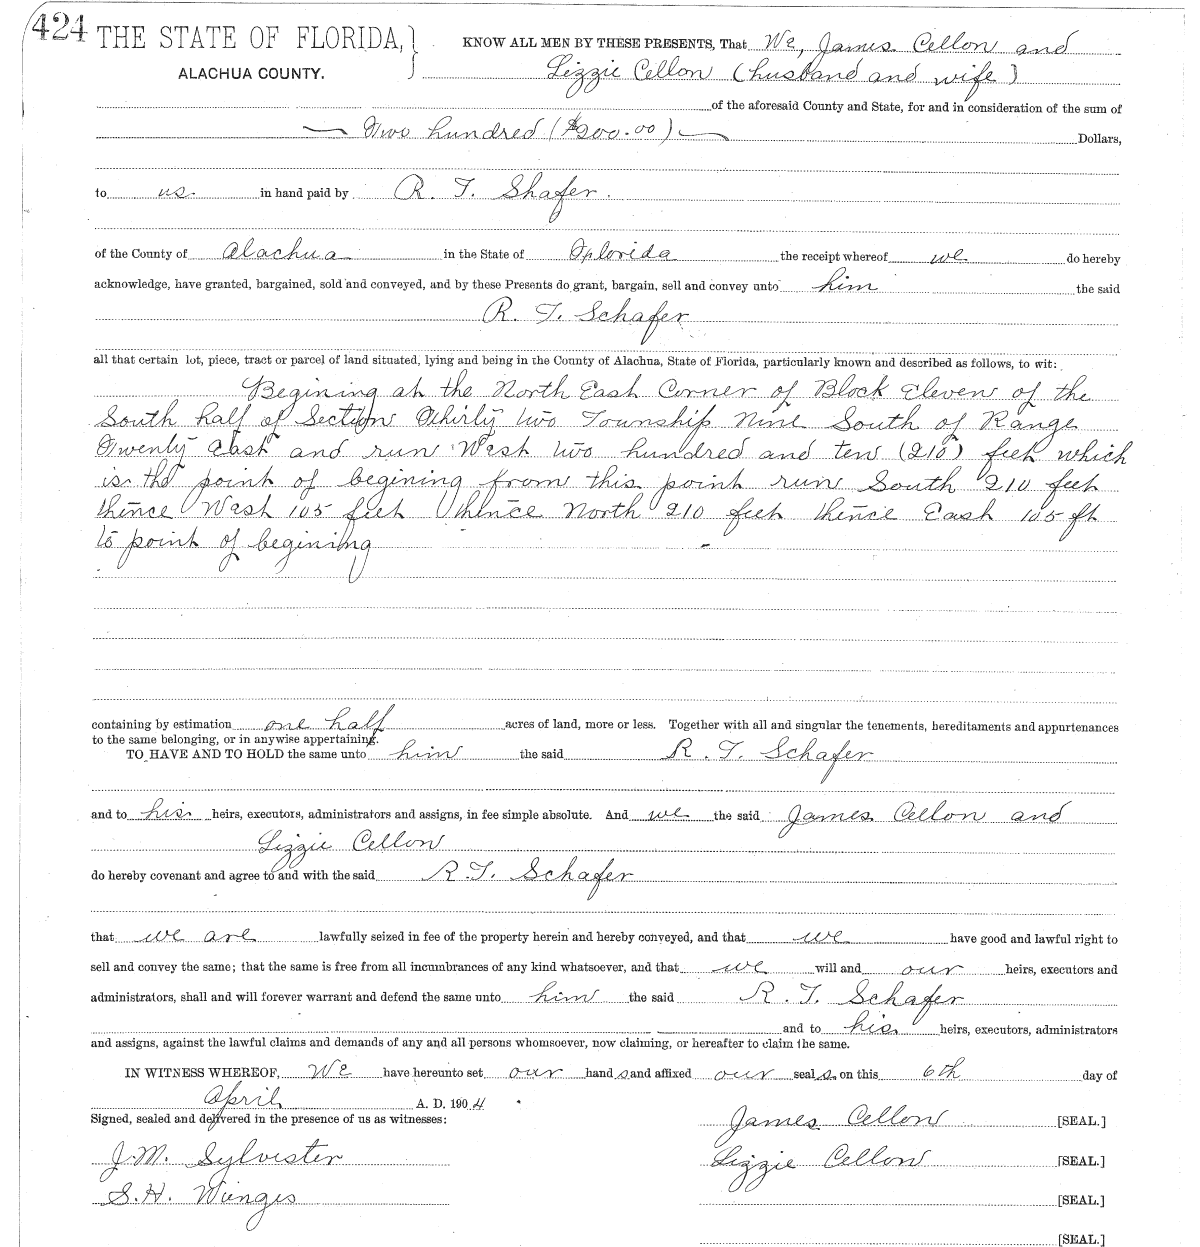 424 THE STATE OF FLORIDA, } KNOW ALL MEN BY THESE PRESENTS, That We, James Cellon and
ALACHUA COUNTY. Lizzie Cellon (husband and wife)
of the aforesaid County and State, for and in consideration of the sum of
Two hundred ($200.00) Dollars,
to us in hand paid by R. T. Shafer.
of the County of Alachua in the State of Florida the receipt whereof we do hereby
acknowledge, have granted, bargained, sold and conveyed, and by these Presents do grant, bargain, sell and convey unto him the said
R. T. Schafer
all that certain lot, piece, tract or parcel of land situated, lying and being in the County of Alachua, State of Florida, particularly known and described as follows, to wit:
Begining at the North East Corner of Block Eleven of the
South half of Section Thirty two Township Nine South of Range
Twenty East and run West two hundred and ten (210) feet which
is the point of begining from this point run South 210 feet
thence West 105 feet thence North 210 feet thence East 105 ft
to point of begining
containing by estimation one half acres of land, more or less. Together with all and singular the tenements, hereditaments and appurtenances
to the same belonging, or in anywise appertaining.
TO HAVE AND TO HOLD the same unto him the said R. T. Schafer
and to his heirs, executors, administrators and assigns, in fee simple absolute. And we the said James Cellon and
Lizzie Cellon
do hereby covenant and agree to and with the said R. T. Schafer
that we are lawfully seized in fee of the property herein and hereby conveyed, and that we have good and lawful right to
sell and convey the same; that the same is free from all incumbrances of any kind whatsoever, and that we will and our heirs, executors and
administrators, shall and will forever warrant and defend the same unto him the said R. T. Schafer
and to his heirs, executors, administrators
and assigns, against the lawful claims and demands of any and all persons whomsoever, now claiming, or hereafter to claim the same.
IN WITNESS WHEREOF, We have hereunto set our hand s and affixed our seal s on this 6th day of
April A. D. 1904
Signed, sealed and delivered in the presence of us as witnesses: James Cellon [SEAL.]
J. M. Sylvester Lizzie Cellon [SEAL.]
S. H. Wienges [SEAL.]
[SEAL.]